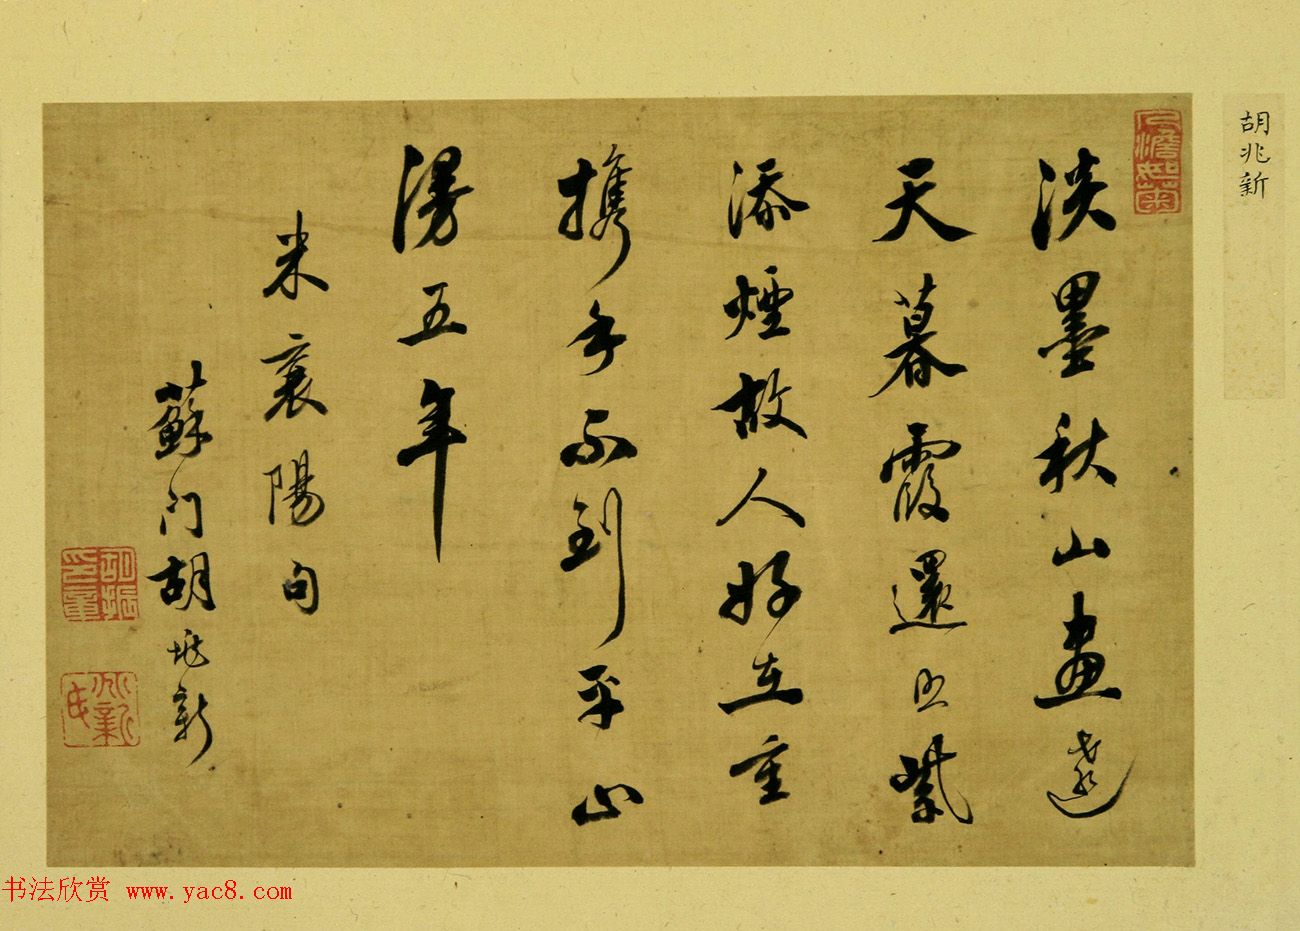 胡兆新
人澹如菊
淡墨秋山畫遠
天暮霞還照紫
添煙故人好在重
攜手不到平山
漫五年
米襄陽句
蘇門胡兆新
兆新氏
书法欣赏 www.yac8.com